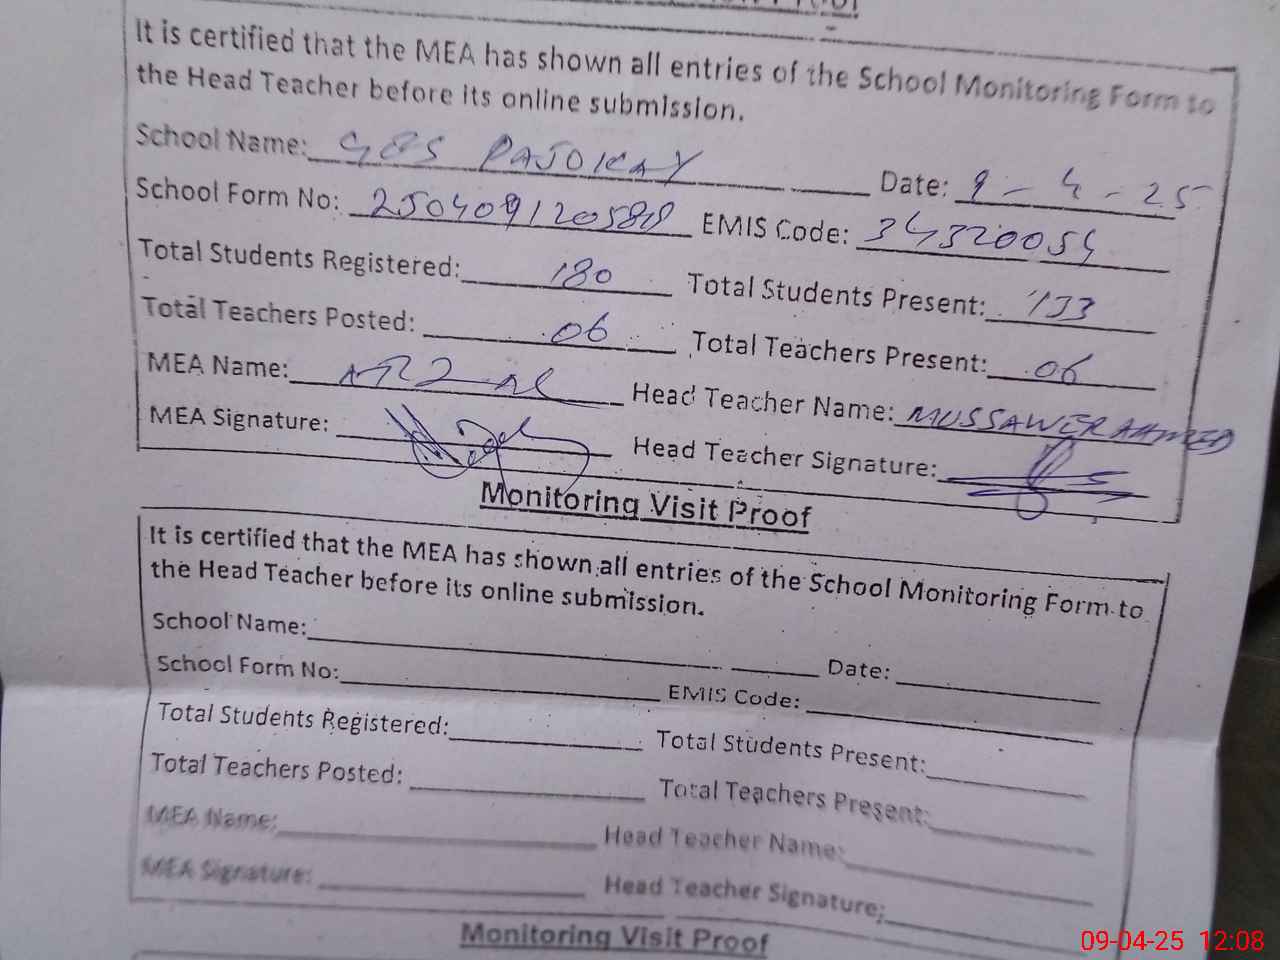 It is certified that the MEA has shown all entries of the School Monitoring Form to
the Head Teacher before its online submission.
School Name: GPS PAJOKAY Date: 9-4-25
School Form No: EMIS Code: 34320054
Total Students Registered: 180 Total Students Present: 133
Total Teachers Posted: 06 Total Teachers Present: 06
MEA Name: Head Teacher Name: MUSSAWER AHMED
MEA Signature: Head Teacher Signature:
Monitoring Visit Proof
It is certified that the MEA has shown all entries of the School Monitoring Form to
the Head Teacher before its online submission.
School Name: Date:
School Form No: EMIS Code:
Total Students Registered: Total Students Present:
Total Teachers Posted: Total Teachers Present:
MEA Name: Head Teacher Name:
MEA Signature: Head Teacher Signature:
Monitoring Visit Proof
09-04-25 12:08